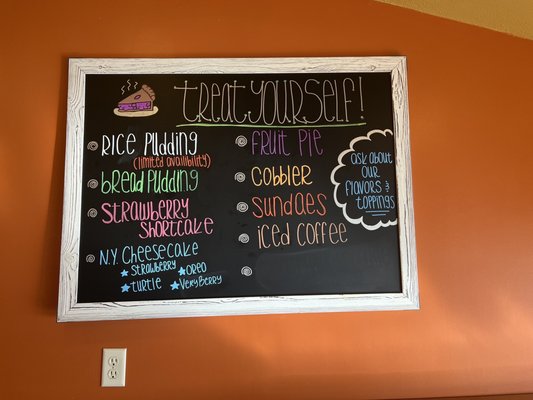 treat yourself!
Rice Pudding
(limited availibility)
bread Pudding
Strawberry
Shortcake
N.Y. Cheesecake
Strawberry
Oreo
turtle
VeryBerry
fruit Pie
Cobbler
Sundaes
iced coffee
ask about
our
flavors &
toppings